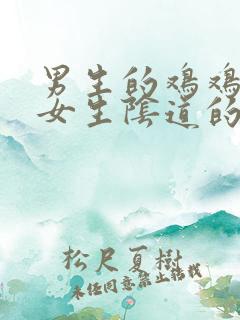 男生的鸡鸡
女生陰道的
松尺夏樹
未任同意禁止转载